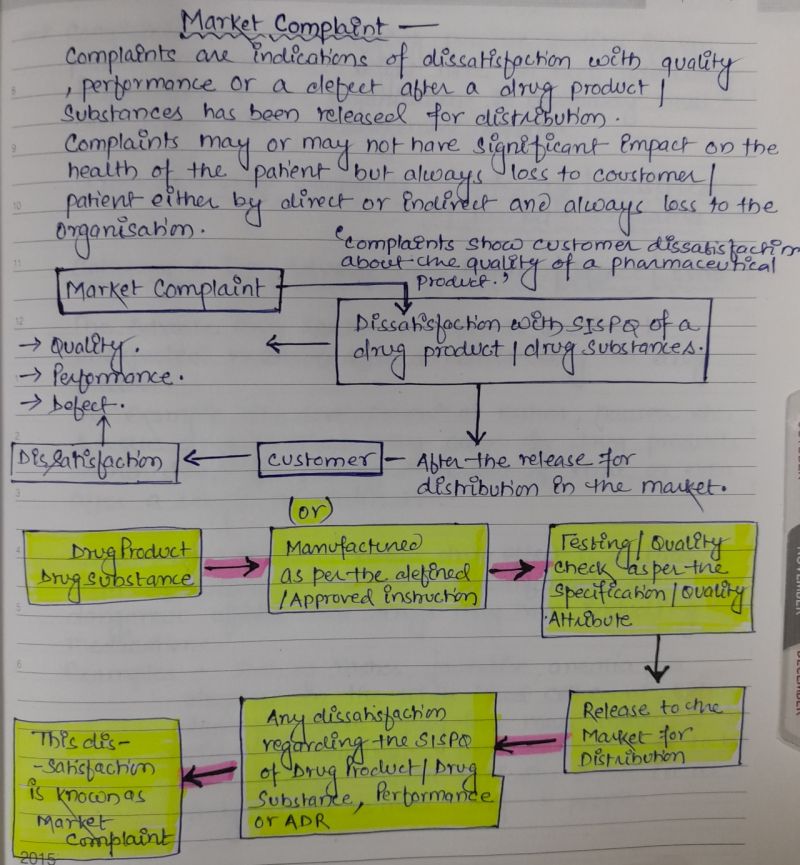 Market Complaint —
Complaints are indications of dissatisfaction with quality
, performance or a defect after a drug product /
Substances has been released for distribution.
Complaints may or may not have significant impact on the
health of the patient but always loss to coustomer /
patient either by direct or indirect and always loss to the
organisation.
"Complaints show customer dissatisfaction
about the quality of a pharmaceutical
product."
Market Complaint
Dissatisfaction with SISPQ of a
drug product / drug substances.
→ Quality.
→ Performance.
→ Defect.
Dissatisfaction
customer
– After the release for
distribution in the market.
(or)
Drug Product
Drug substance
Manufactured
as per the defined
/ Approved instruction
Testing / Quality
check as per the
Specification / Quality
Attribute
Release to the
Market for
Distribution
Any dissatisfaction
regarding the SISPQ
of Drug Product / Drug
Substance, Performance
or ADR
This dis-
-satisfaction
is known as
Market
Complaint
2015
NOVEMBER
DECEMBER